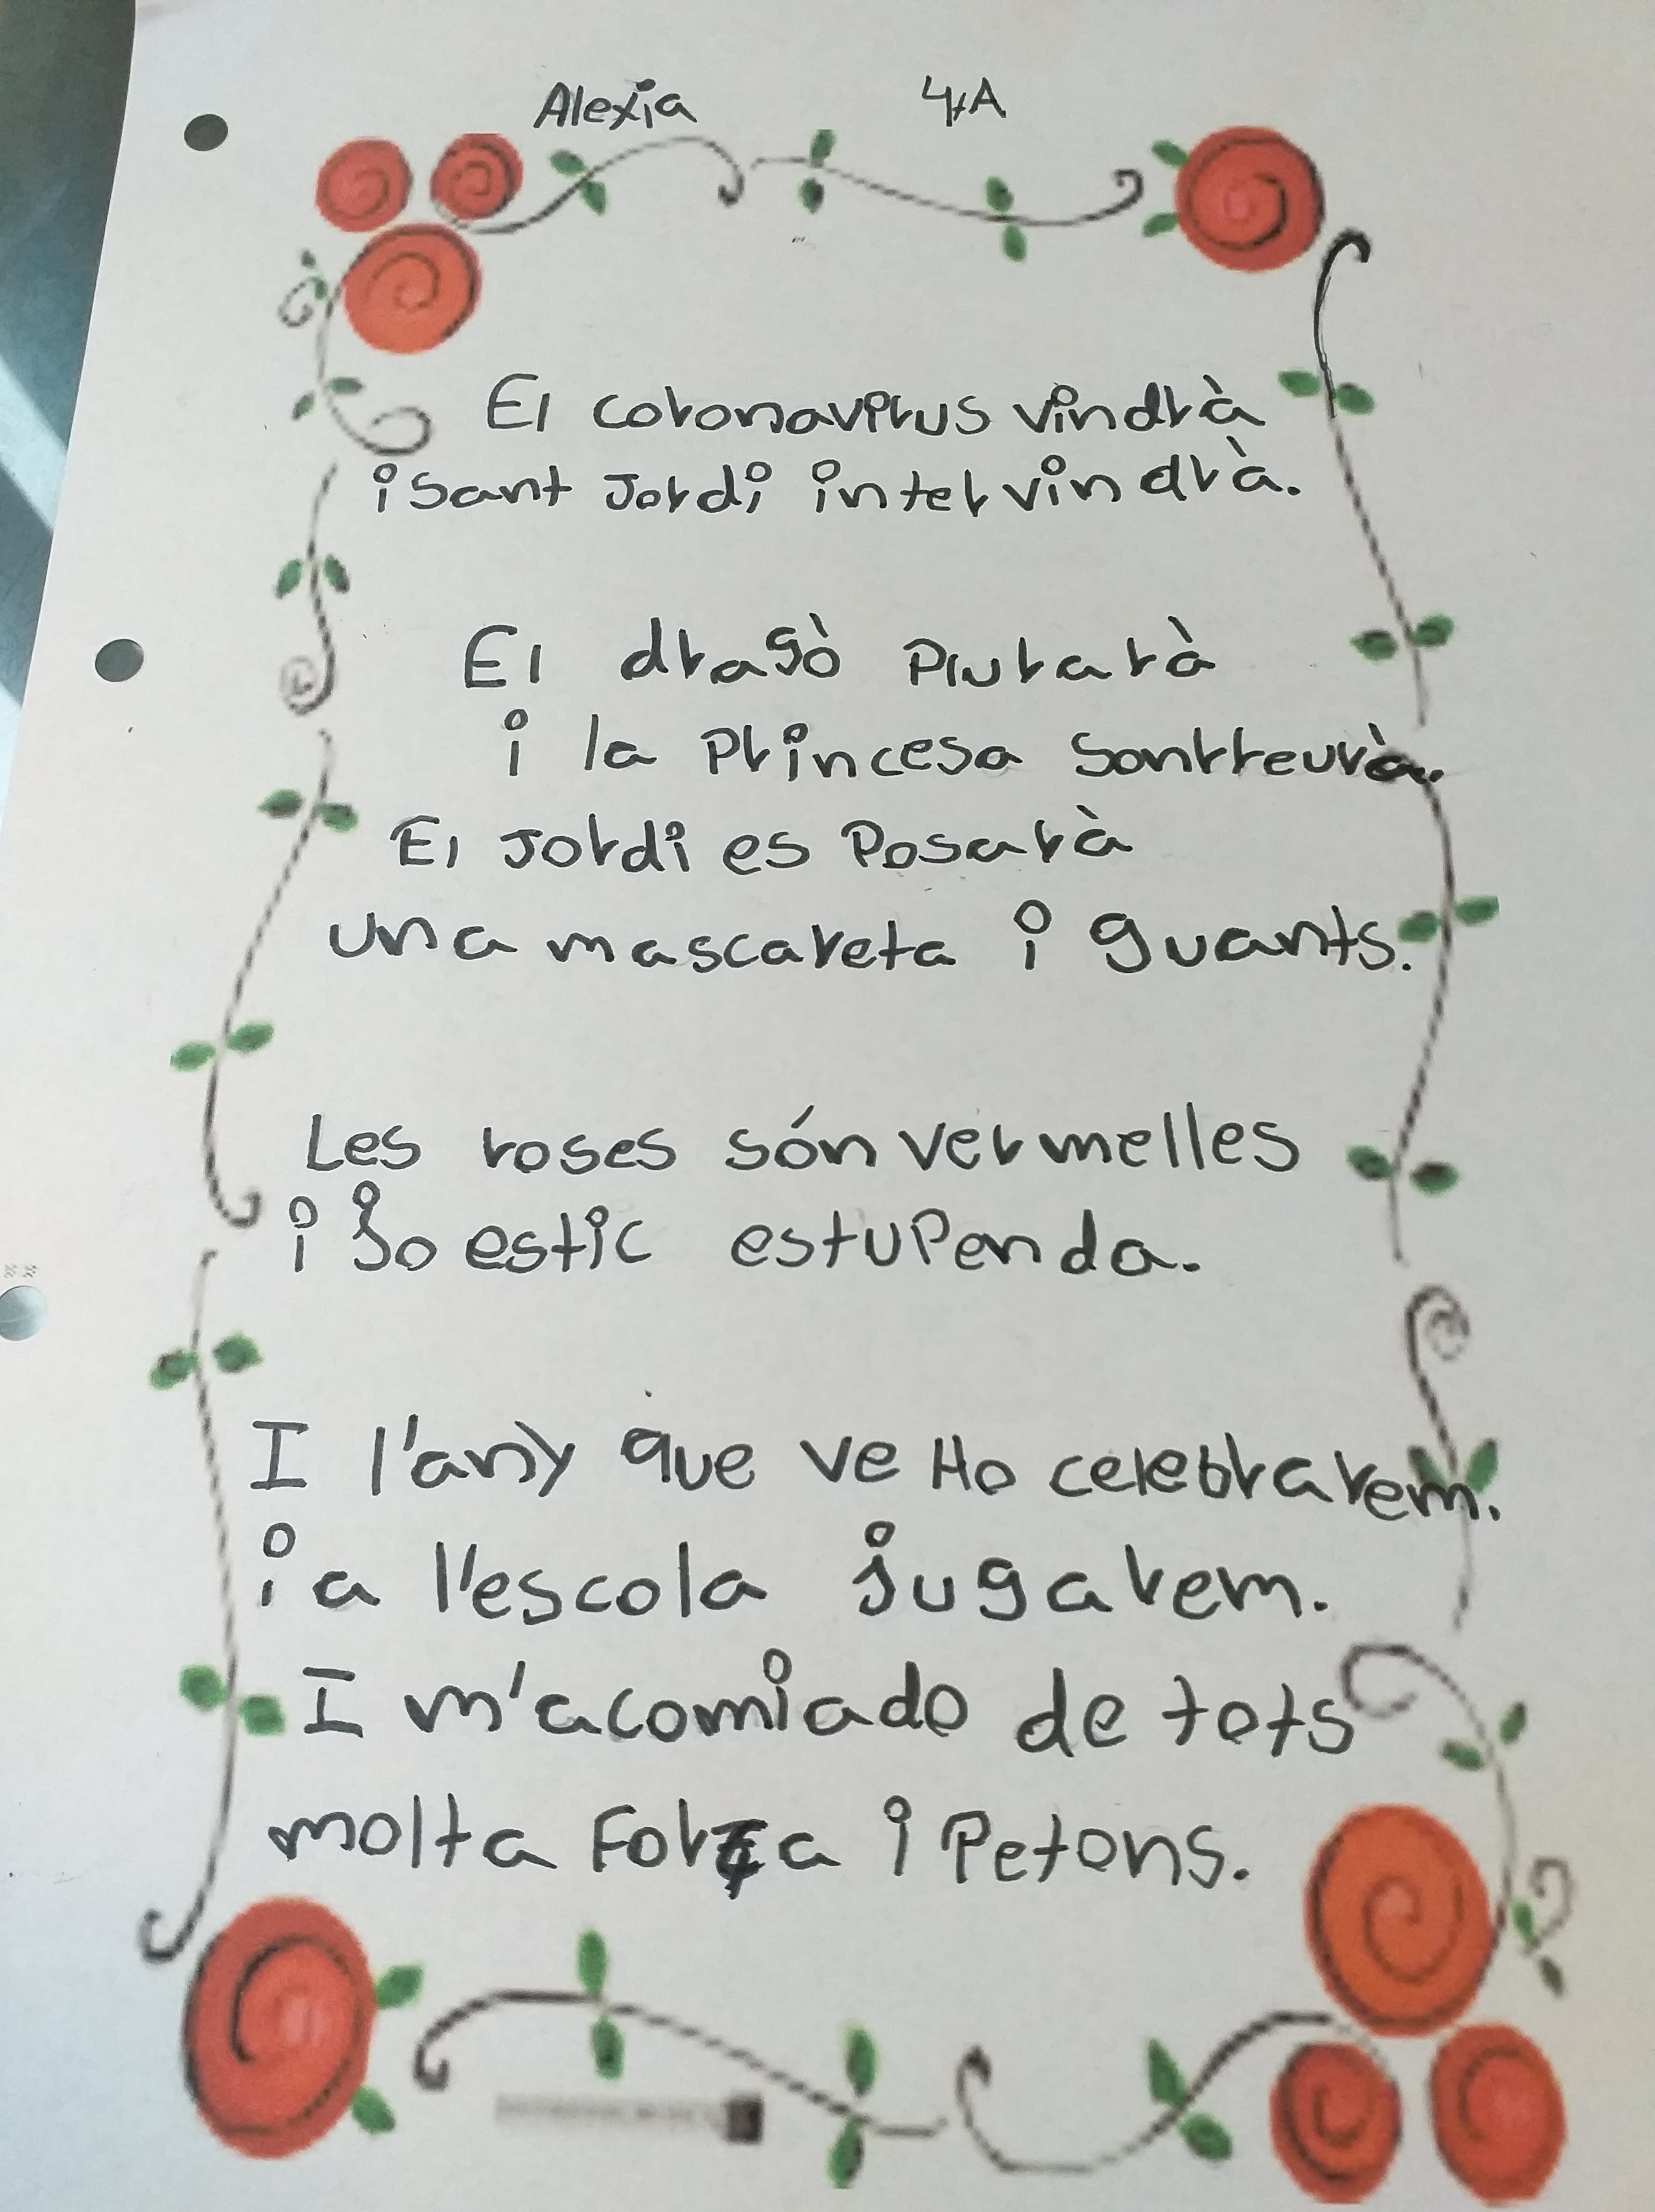 Alexia 4tA
El coronavirus vindrà
i Sant Jordi intervindrà.
El dragò Plurarà
i la Princesa Somrreurà.
El Jordi es Posarà
una mascareta i guants.
Les roses són vermelles
i jo estic estupenda.
I l'any que ve Ho celebrarem.
i a l'escola jugarem.
I m'acomiado de tots
molta Força i Petons.